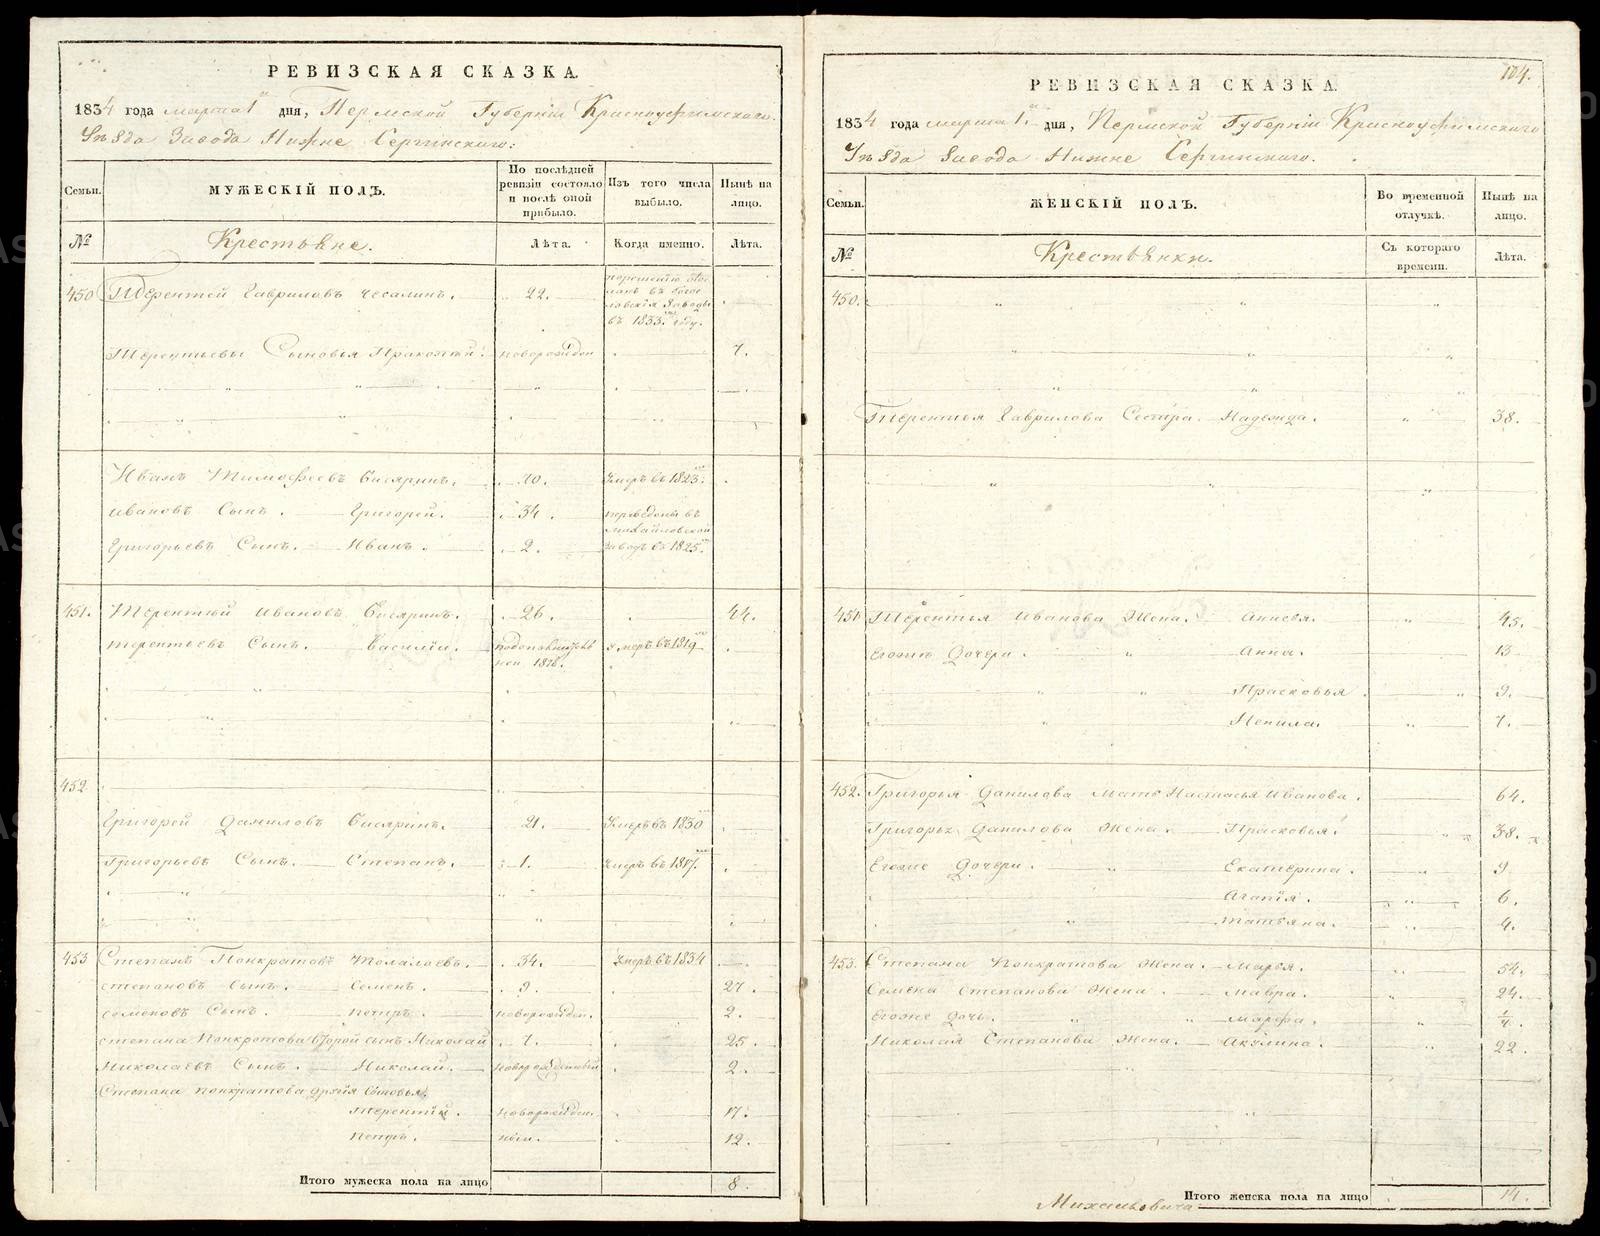 РЕВИЗСКАЯ СКАЗКА.
1834 года марта 1 дня, Пермской Губерніи Красноуфимскаго
Уѣзда Завода Нижне Сергинскаго:
Семьи.
МУЖЕСКІЙ ПОЛЪ.
По послѣдней ревизіи состояло и послѣ оной прибыло.
Изъ того числа выбыло.
Нынѣ на лицо.
№
Крестьяне.
Лѣта.
Когда именно.
Лѣта.
450 Терентей Гавриловъ Чесалинъ. 22. въ 1833 году.
Терентьевы Сыновья новорожден 7.
Иванъ Тимофеевъ 70. Умеръ въ 1823.
Ивановъ Сынъ. Григорей. 34. переведены въ
Михайловской
Григорьевъ Сынъ. Иванъ. 2. заводъ въ 1825.
451. Терентей Ивановъ 26. 44.
Терентьевъ Сынъ. Василіи. умеръ въ 1819
452
Григорей Даниловъ 21. Умеръ въ 1830
Григорьевъ Сынъ. Степанъ. 1. Умеръ въ 1817.
453 Степанъ Понкратовъ 34. Умеръ въ 1834
Степановъ Сынъ. Семенъ. 9. 27.
Семеновъ Сынъ. Петръ. новорожден. 2.
Степана Понкратова второй сынъ Николай 7. 25.
Николаевъ Сынъ. Николай. 2.
Степана Понкратова другія Сыновья.
Терентіи. новорожден. 17.
Петръ. ныи. 12.
Итого мужеска пола на лицо 8.
104.
РЕВИЗСКАЯ СКАЗКА.
1834 года марта 1. дня, Пермской Губерніи Красноуфимскаго
Уѣзда Завода Нижне Сергинскаго.
Семьи.
ЖЕНСКІЙ ПОЛЪ.
Во временной отлучкѣ.
Нынѣ на лицо.
№
Крестьянки.
Съ котораго времени.
Лѣта.
450.
Терентья Гаврилова Сестра. Надежда. 38.
451 Терентья Иванова Жена. 45.
Егоже Дочери. Анна. 13
Прасковья. 9.
Ненила. 7.
452. Григорья Данилова Мать Настасья Иванова. 64.
Григорья Данилова Жена. Прасковья. 38.
Егоже Дочери. Екатерина. 9
Агапія. 6.
Татьяна. 4.
453. Степана Понкратова Жена. Марья. 54.
Семена Степанова Жена. Мавра. 24.
Егоже дочь. Марфа. 1/4.
Николая Степанова Жена. Акулина. 22.
Итого женска пола на лицо 14.